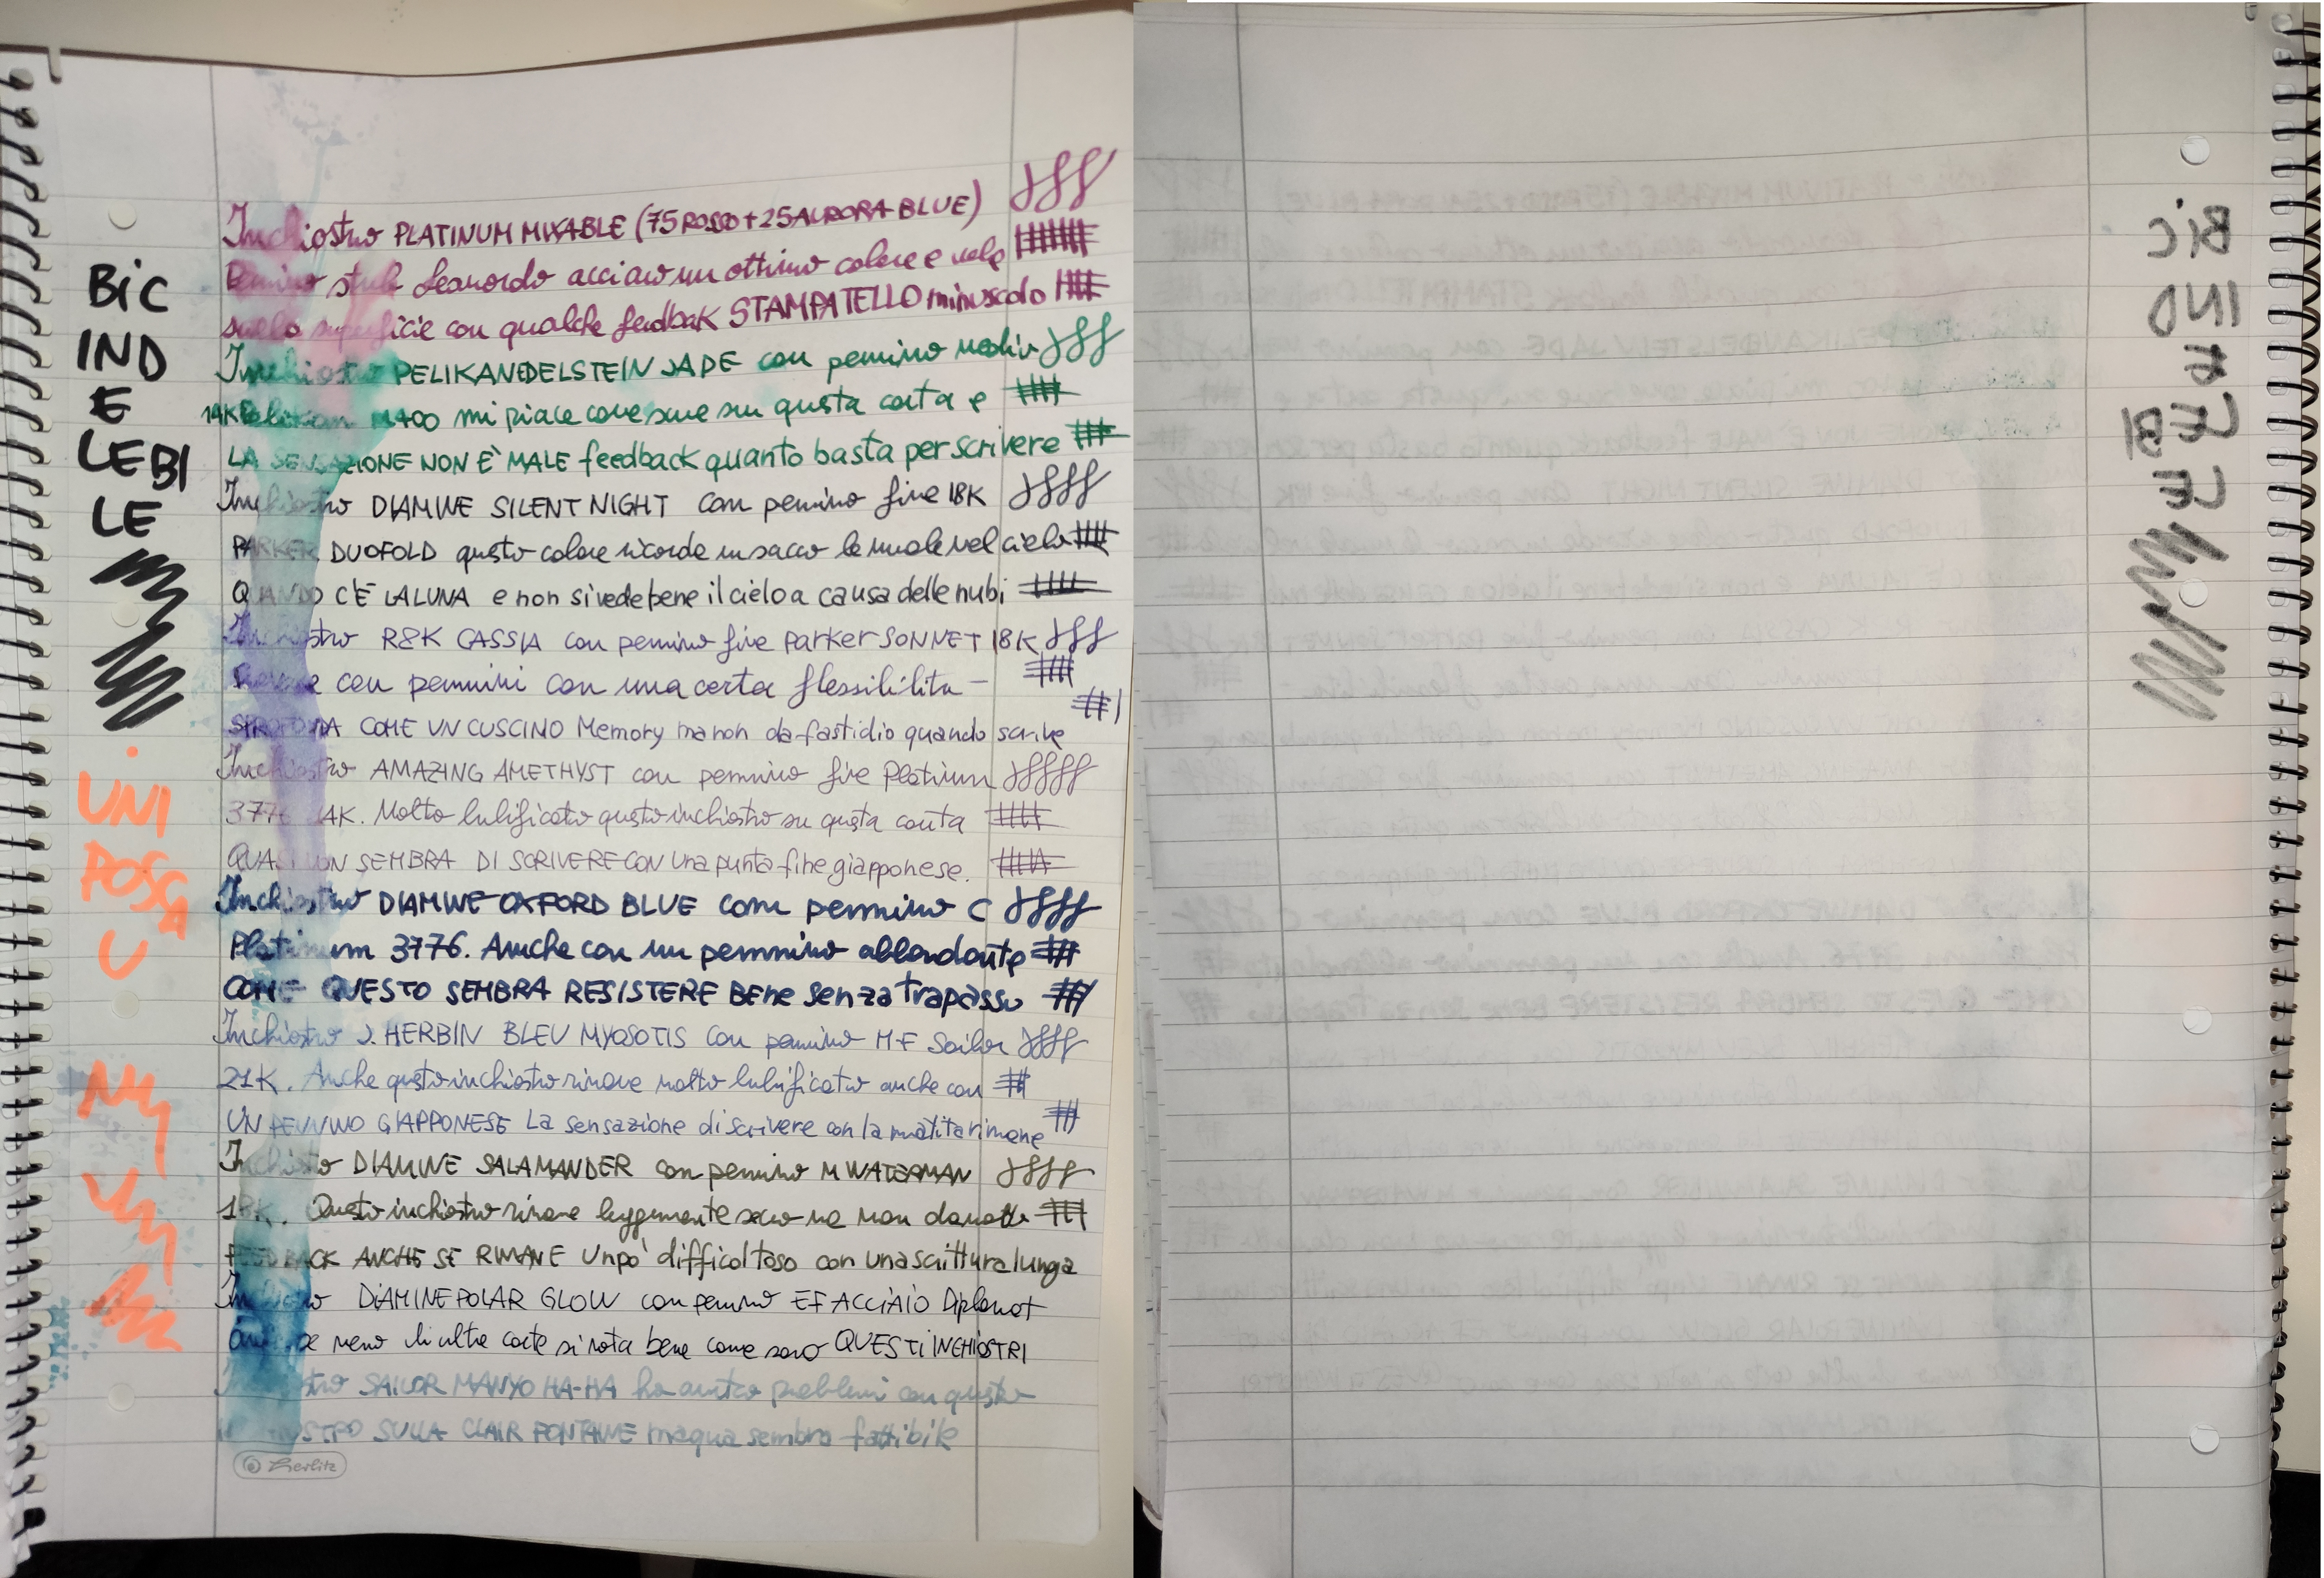 BIC
IND
E
LEBI
LE
UNI
POSCA
U
Inchiostro PLATINUM MIXABLE (75 ROSSO + 25 AURORA BLUE)
Pennino stub Leonardo acciaio un ottimo colore e
sulla superficie con qualche feedbak STAMPATELLO minuscolo
Inchiostro PELIKAN EDELSTEIN JADE con pennino medio
14K Pelikan M400 mi piace come su questa carta e
LA SENSAZIONE NON È MALE feedback quanto basta per scrivere
Inchiostro DIAMINE SILENT NIGHT con pennino fine 18K
PARKER DUOFOLD questo colore ricorda un sacco le nuvole nel cielo
QUANDO C'È LA LUNA e non si vede bene il cielo a causa delle nubi
Inchiostro R&K CASSIA con pennino fine Parker SONNET 18K
con pennini con una certa flessibilita
COME UN CUSCINO Memory ma non da fastidio quando scrive
Inchiostro AMAZING AMETHYST con pennino fine Platinum
3776 14K. Molto lubrificato questo inchiostro su questa carta
QUASI NON SEMBRA DI SCRIVERE CON una punta fine giapponese.
Inchiostro DIAMINE OXFORD BLUE con pennino C
Platinum 3776. Anche con un pennino abbondante
COME QUESTO SEMBRA RESISTERE BENE senza trapasso
Inchiostro J. HERBIN BLEU MYOSOTIS con pennino M-F Sailor
21K. Anche questo inchiostro rimane molto lubrificato anche con
UN PENNINO GIAPPONESE La sensazione di scrivere con la matita rimane
Inchiostro DIAMINE SALAMANDER con pennino M WATERMAN
18K. Questo inchiostro rimane leggermente secco ma non
FEEDBACK ANCHE SE RIMANE un po' difficoltoso con una scrittura lunga
Inchiostro DIAMINE POLAR GLOW con pennino EF ACCIAIO Diplomat
meno di altre carte si nota bene come sono QUESTI INCHIOSTRI
Inchiostro SAILOR MANYO HA-HA ho avuto problemi con questo
INCHIOSTRO SULLA CLAIR FONTAINE ma qua sembra fattibile
herlitz